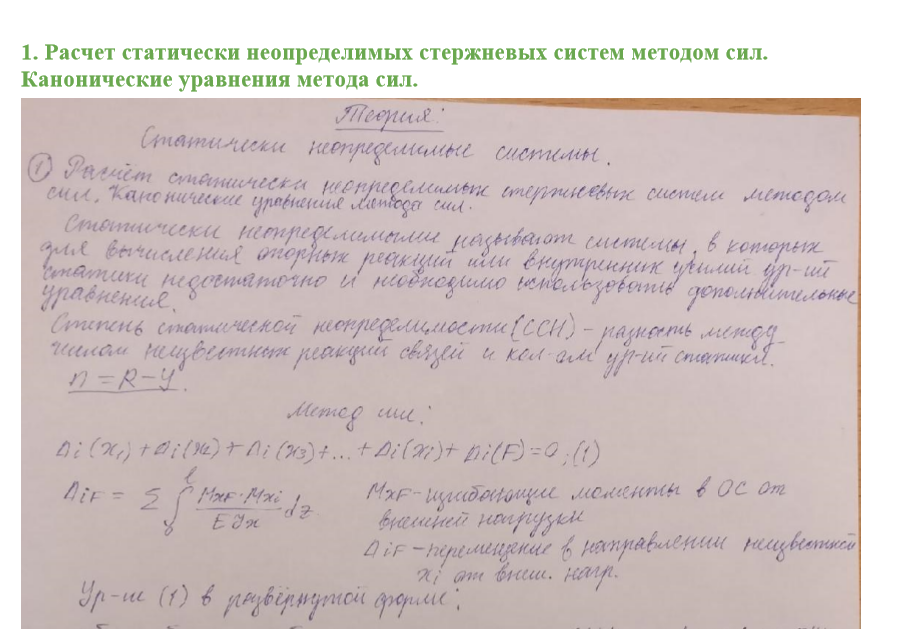 1. Расчет статически неопределимых стержневых систем методом сил.
Канонические уравнения метода сил.
Теория:
Статически неопределимые системы.
① Расчёт статически неопределимых стержневых систем методом
сил. Канонические уравнения метода сил.
Статически неопределимыми называют системы, в которых
для вычисления опорных реакций или внутренних усилий ур-ий
статики недостаточно и необходимо использовать дополнительные
уравнения.
Степень статической неопределимости (ССН) – разность между
числом неизвестных реакций связей и кол-ом ур-ий статики.
n = R – У.
Метод сил:
Δi(x₁) + Δi(x₂) + Δi(x₃) + ... + Δi(xi) + Δi(F) = 0; (1)
ΔiF = Σ ∫₀ˡ (MxF · Mxi)/(E Jx) dz
MxF – изгибающие моменты в ОС от
внешней нагрузки
ΔiF – перемещение в направлении неизвестной
xi от внеш. нагр.
Ур-ие (1) в развёрнутой форме: